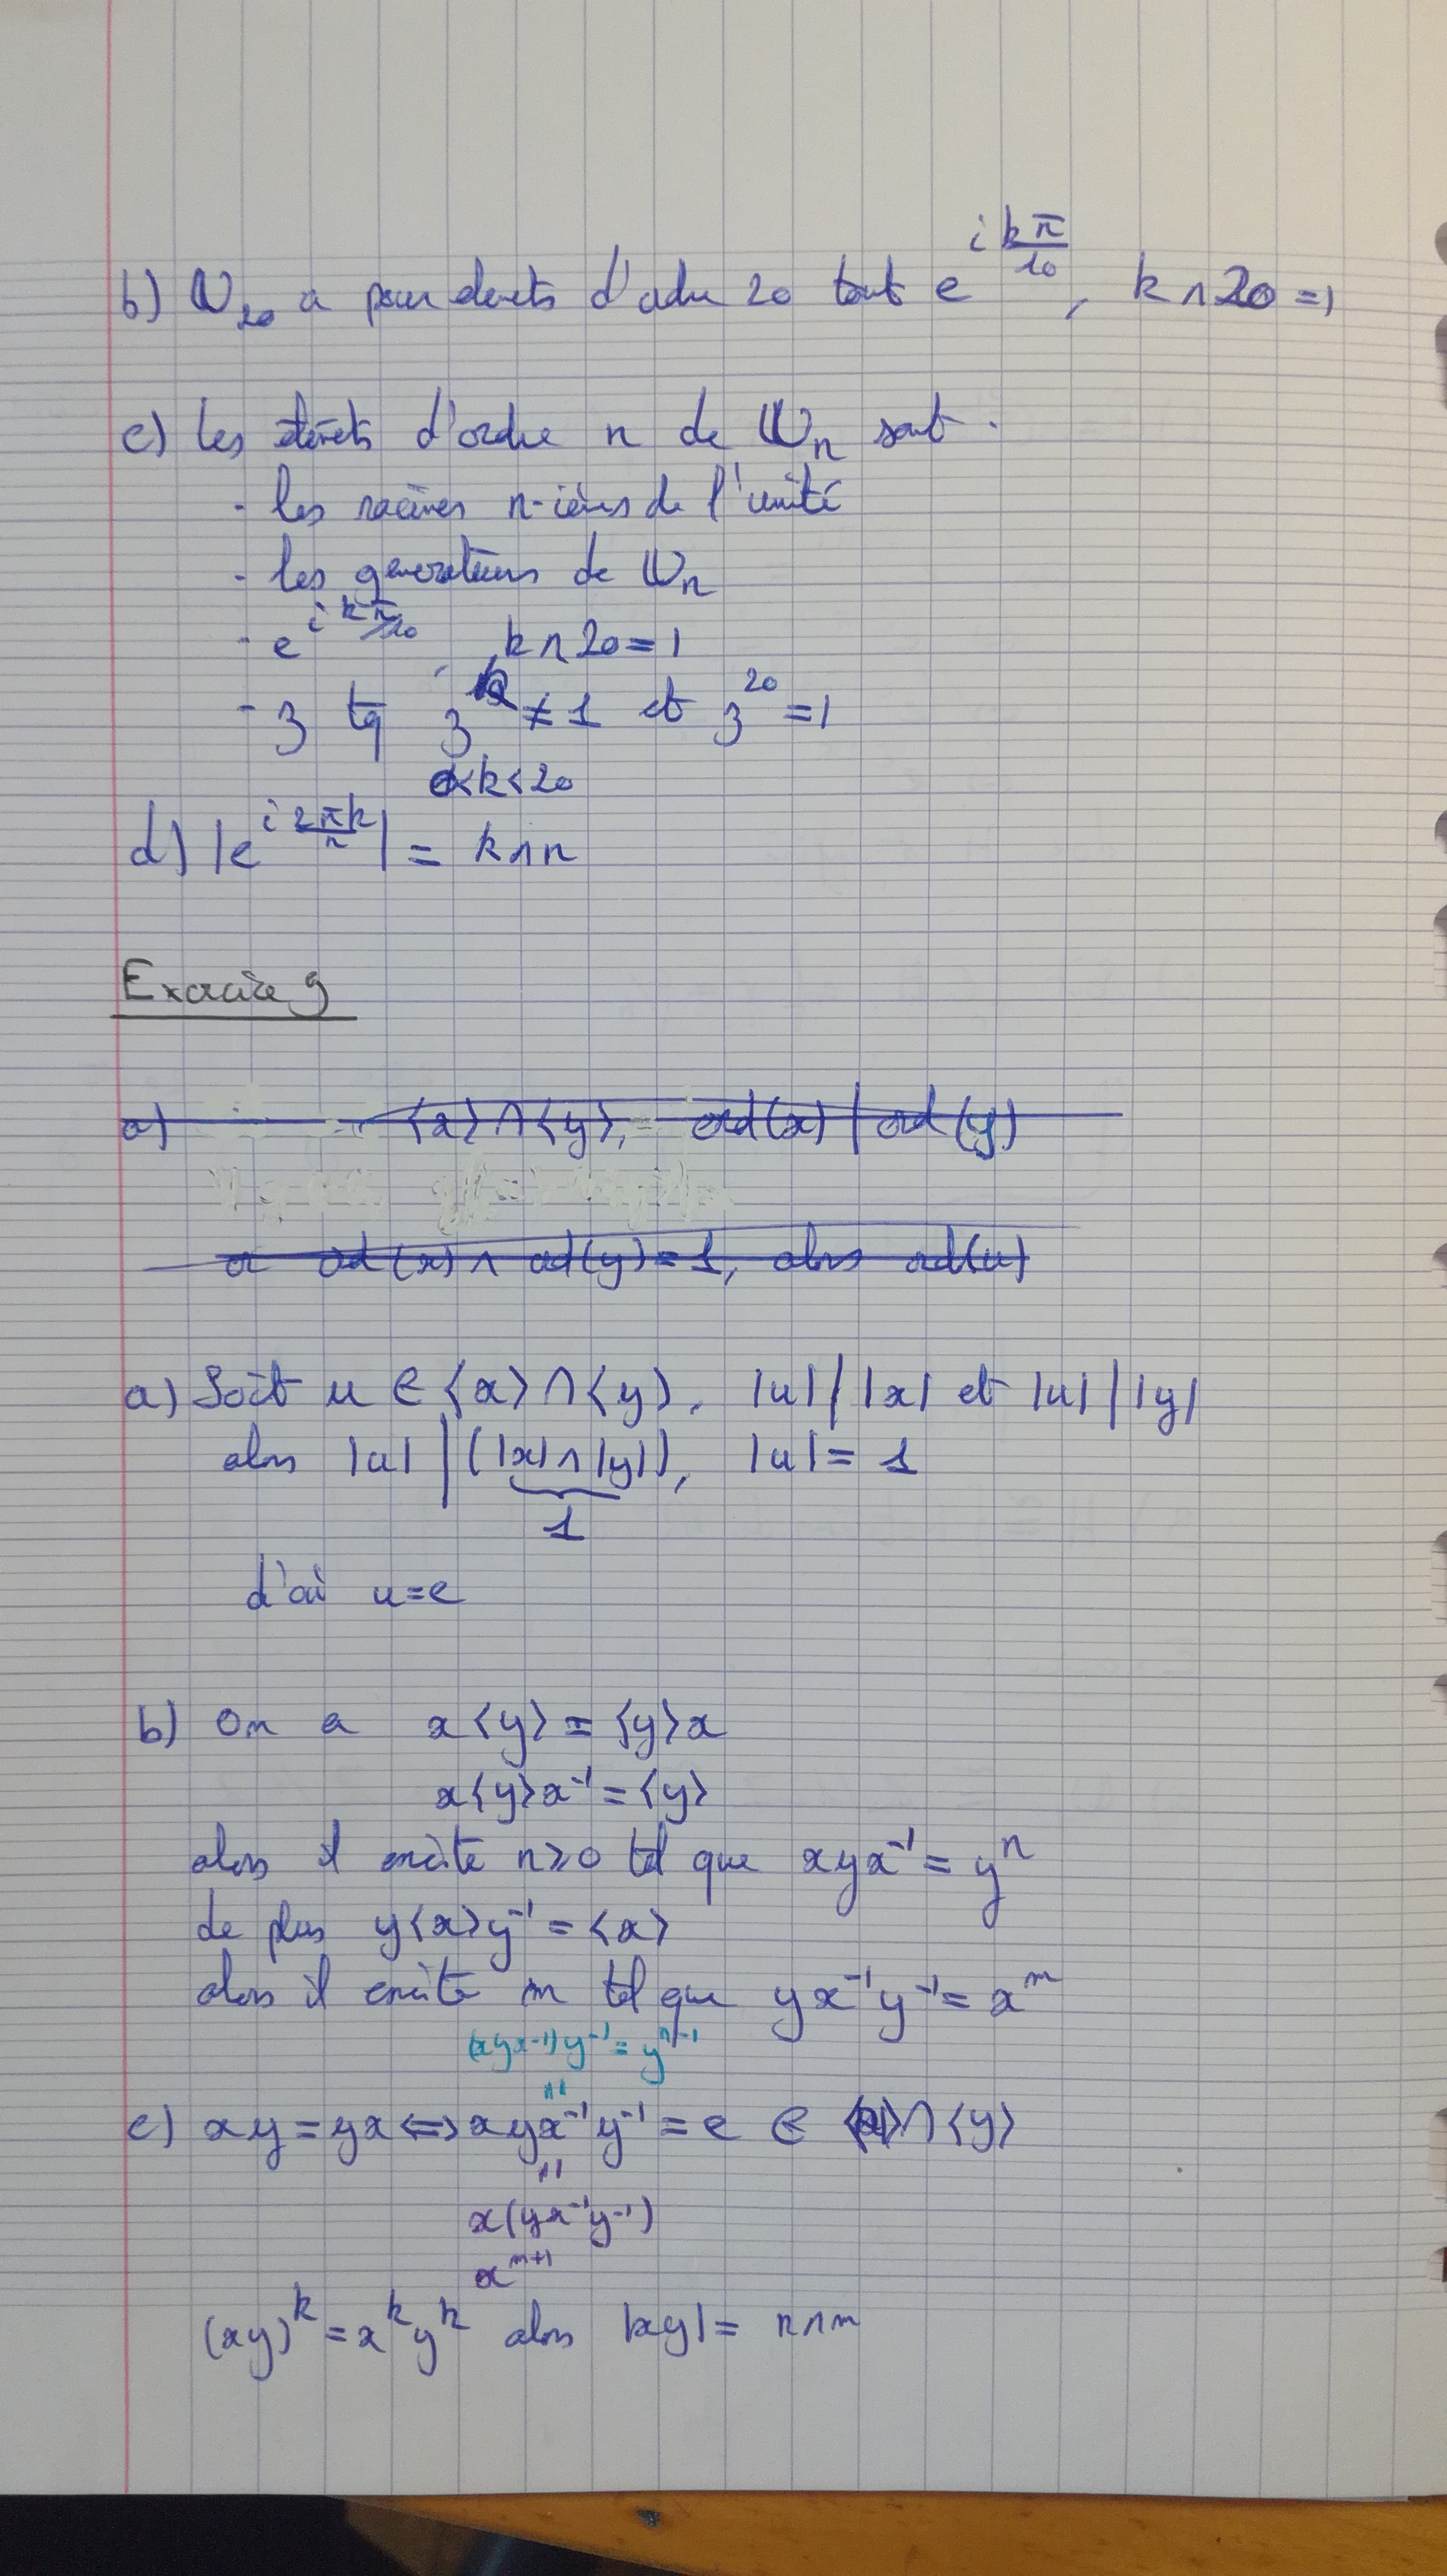 b) 𝕌₂₀ a pour élements d'ordre 20 tout e^{i kπ/10}, k ∧ 20 = 1
c) Les élements d'ordre n de 𝕌ₙ sont :
- les racines n-ièmes de l'unité
- les generateurs de 𝕌ₙ
- e^{i kπ/20}, k ∧ 20 = 1
- z tq z^k ≠ 1 et z^20 = 1
0<k<20
d) |e^{i 2πk/n}| = k∧n
Exercice 9
a) ⟨x⟩∩⟨y⟩, ord(x) | ord(y)
ord(x) ∧ ord(y) = 1, alors ord(u)
a) Soit u ∈ ⟨x⟩ ∩ ⟨y⟩, |u| | |x| et |u| | |y|
alors |u| | (|x| ∧ |y|), |u| = 1
1
d'où u=e
b) On a x⟨y⟩ = ⟨y⟩x
x⟨y⟩x⁻¹ = ⟨y⟩
alors il existe n≥0 tel que xyx⁻¹ = yⁿ
de plus y⟨x⟩y⁻¹ = ⟨x⟩
alors il existe m tel que yx⁻¹y⁻¹ = x^m
(xyx-1)y⁻¹ = y^{n-1}
=
c) xy = yx ⟺ xyx⁻¹y⁻¹ = e ∈ ⟨x⟩∩⟨y⟩
=
x(yx⁻¹y⁻¹)
x^{m+1}
(xy)^k = x^k y^k alors |xy| = n∧m